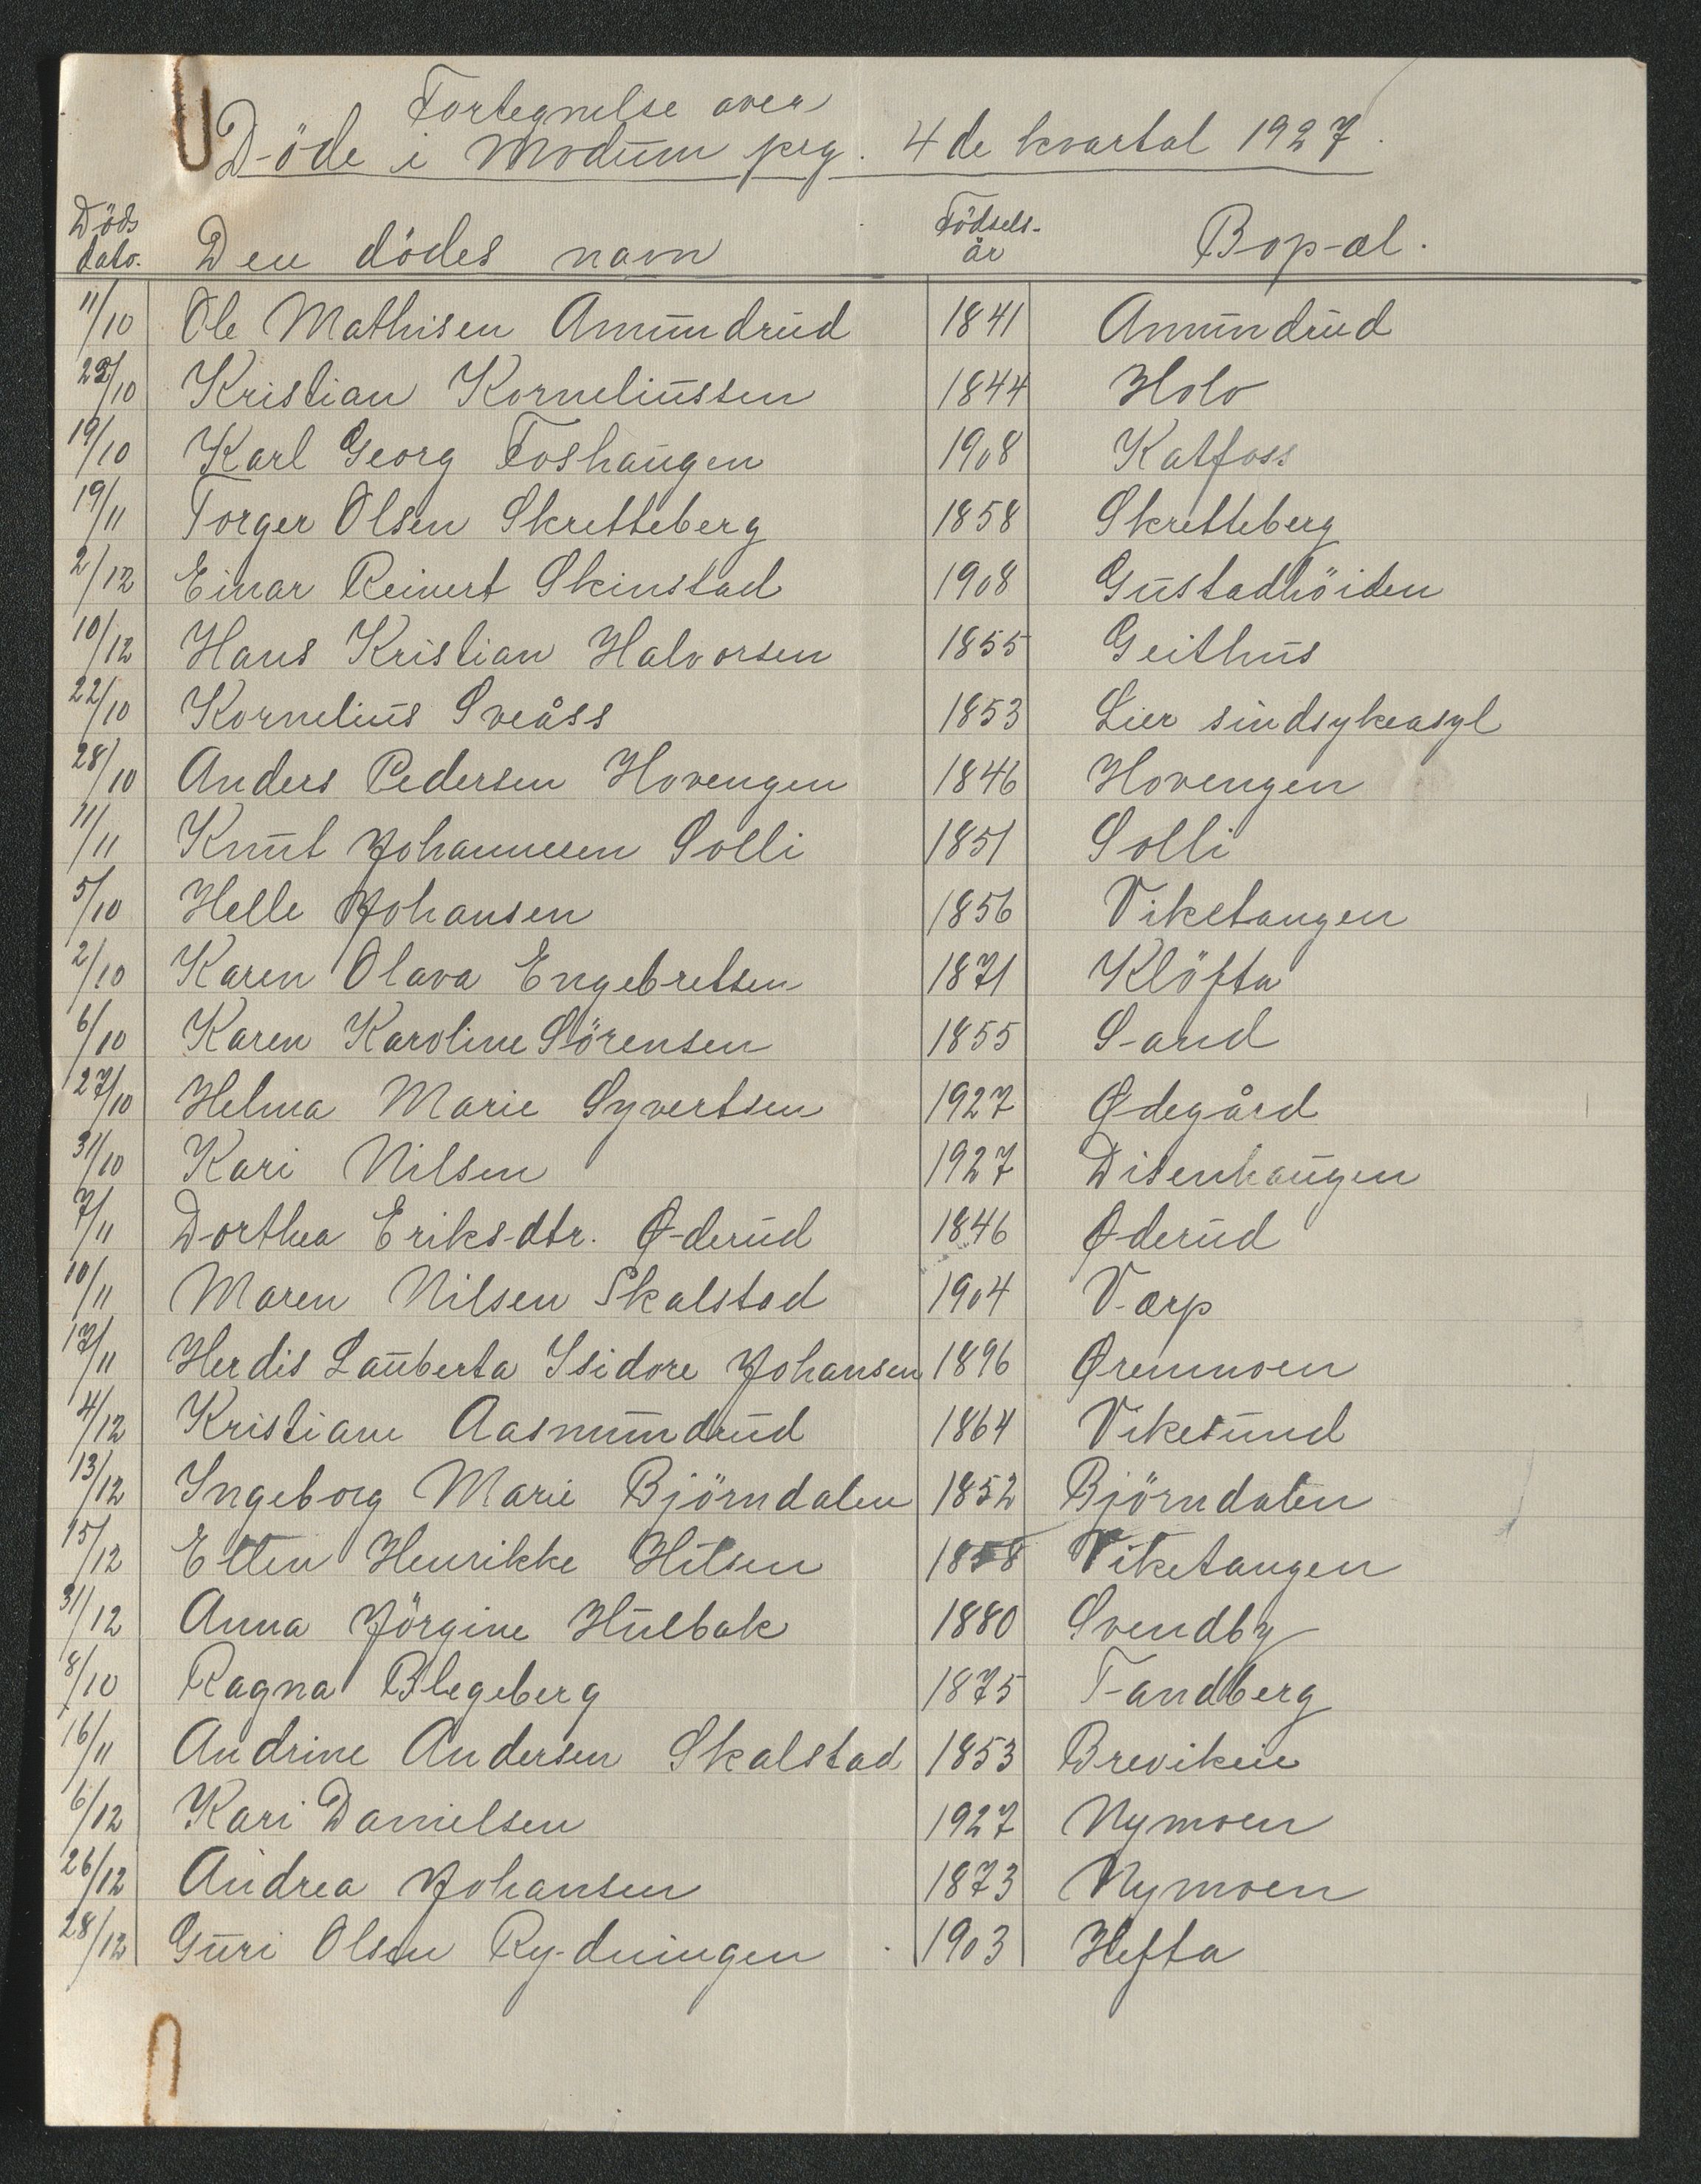 Fortegnelse over
Döde i Modum prg. 4de kvartal 1927.
Döds dato. Den dödes navn Födsels-år Bopæl.
11/10 Ole Mathisen Amundrud 1841 Amundrud
/10 Kristian Korneliussen 1844 Holo
19/10 Karl Georg Foshaugen 1908 Katfoss
19/11 Torger Olsen Skretteberg 1858 Skretteberg
2/12 Einar Reinert Skinstad 1908 Gustadhöiden
10/12 Hans Kristian Halvorsen 1855 Geithus
22/10 Kornelius Sveåss 1853 Lier sindsykeasyl
28/10 Anders Pedersen Hovengen 1846 Hovengen
11/11 Knut Johannesen Solli 1851 Solli
5/10 Helle Johansen 1856 Viketangen
2/10 Karen Olava Engebretsen 1871 Klöfta
6/10 Karen Karoline Sörensen 1855 Sand
27/10 Helma Marie Syvertsen 1927 Ødegård
31/10 Kari Nilsen 1927 Disenhaugen
7/11 Dorthea Eriksdtr. Øderud 1846 Øderud
10/11 Maren Nilsen Skalstad 1904 Varp
17/11 Herdis Lauberta Isidore Johansen 1896 Øremoen
4/12 Kristiane Aasmundrud 1864 Vikesund
13/12 Ingeborg Marie Björndalen 1852 Björndalen
15/12 Ellen Henrikke Hilsen 1858 Viketangen
31/12 Anna Jörgine Hulbak 1880 Svendby
8/10 Ragna Blegeberg 1875 Tandberg
16/11 Andrine Andersen Skalstad 1853 Breviken
6/12 Kari Danielsen 1927 Nymoen
26/12 Andrea Johansen 1873 Nymoen
28/12 Guri Olsen Rydningen 1903 Hefta